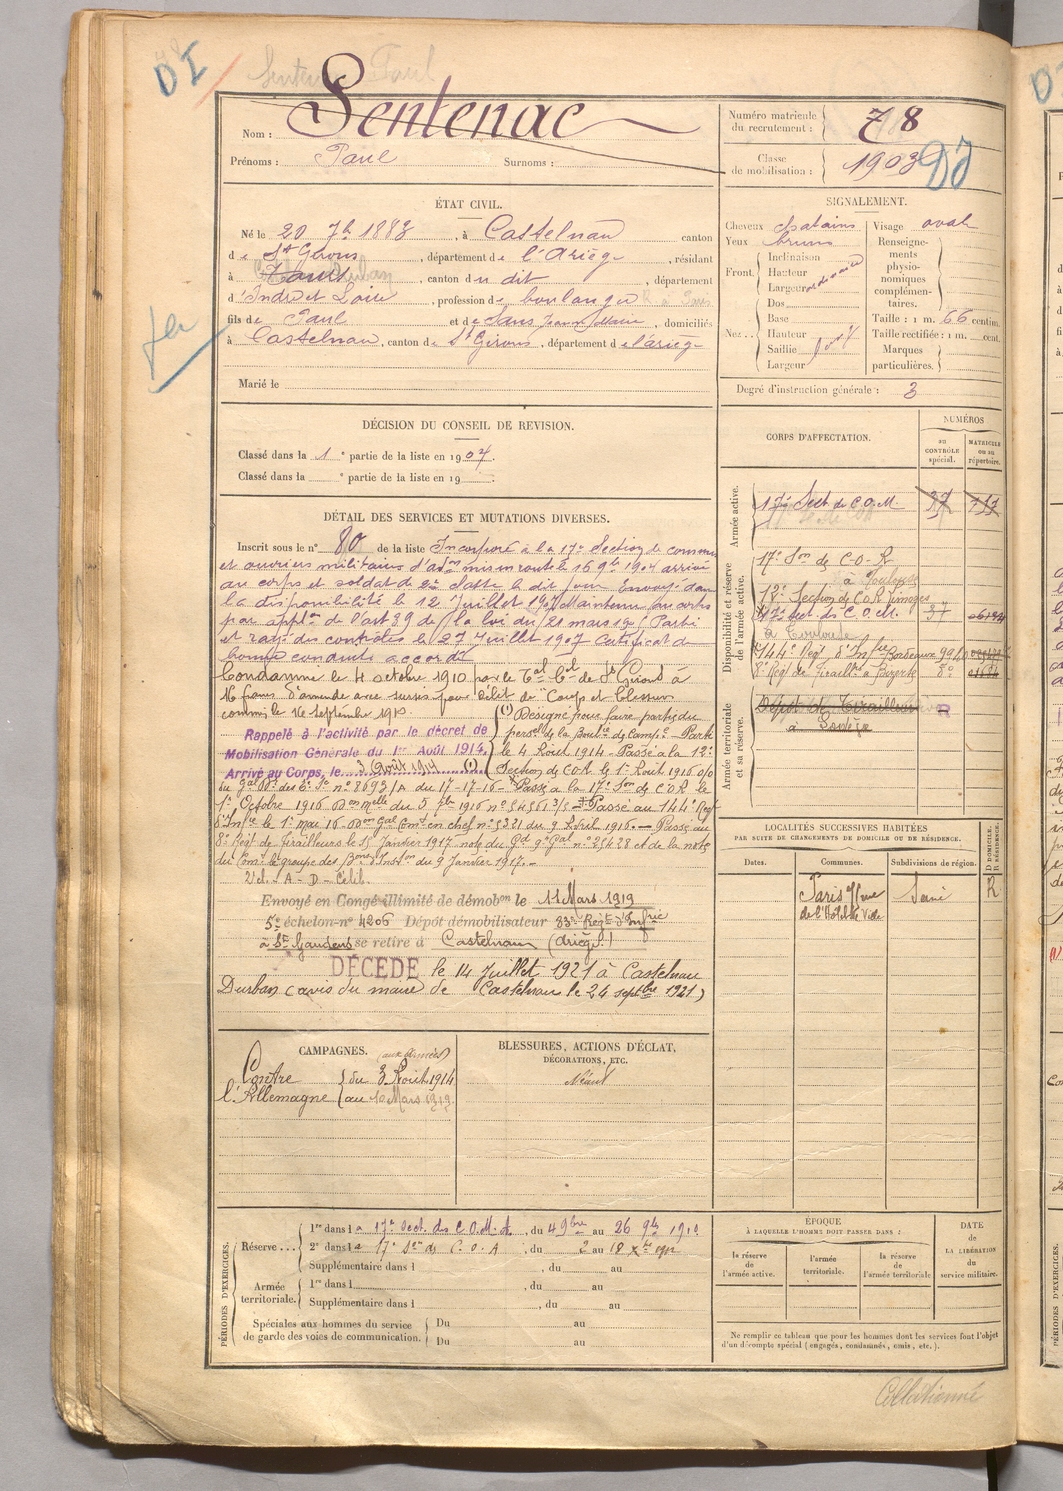 DI
Sentenac Paul
Nom : Sentenac
Prénoms : Paul Surnoms :
Numéro matricule du recrutement : 78
Classe de mobilisation : 1903
ÉTAT CIVIL.
Né le 20 7b 1883, à Castelnau canton
de St Girons, département de l'Ariège, résidant
à Tours, canton du dit, département
d'Indre et Loire, profession de boulanger
fils de Paul et de Sans Jeanne Marie, domiciliés
à Castelnau, canton de St Girons, département de l'ariège
Marié le
SIGNALEMENT.
Cheveux chatains Visage oval
Yeux bruns
Front. Inclinaison
Hauteur
Largeur
Dos
Nez . . Base
Hauteur
Saillie
Largeur
Renseignements physionomiques complémentaires.
Taille : 1 m. 66 centim.
Taille rectifiée : 1 m. cent.
Marques particulières.
Degré d'instruction générale : 3
DÉCISION DU CONSEIL DE REVISION.
Classé dans la 1e partie de la liste en 1904
Classé dans la e partie de la liste en 19
DÉTAIL DES SERVICES ET MUTATIONS DIVERSES.
Inscrit sous le n° 80 de la liste Incorporé à la 17e Section de commis
et ouvriers militaires d'adm mis en route le 16 9b 1904 arrivé
au corps et soldat de 2e classe le dit jour Envoyé dans
la disponibilité le 12 Juillet 1907 Maintenu au corps
par appl de l'art 39 de la loi du 21 mars 190 Parti
et rayé des contrôles le 27 Juillet 1907 Certificat de
bonne conduite accordé
Condamné le 4 octobre 1910 par le Tal Cel de St Girons à
16 francs d'amende avec sursis pour délit de "Coups et blessures
commis le 16 septembre 1910
Rappelé à l'activité par le décret de
Mobilisation Générale du 1er Août 1914.
Arrivé au Corps, le 3 Août 1914 (1)
(1) Désigné pour faire partie du
persel de la Boulie de Campe - Parti
le 4 Août 1914 - Passé à la 12e
Section de COA le 1er Août 1916 o/o
du Gal Dt des 6e Se n° 8693/A du 17-17-16 - Passé à la 17e Son de COA le
1er Octobre 1916 Don Melle du 5 7bre 1916 n° 54561 3/5 - Passé au 144e Regt
d'Infie le 1er mai 16 - Don Gal Comt en chef n° 5221 du 9 Avril 1916. - Passé au
8e Régt de Tirailleurs le 15 Janvier 1917 note du Gd Qr Gal n° 25428 et de la note
du Comt le groupe des Bons d'Inston du 9 Janvier 1917. -
Vel. - A - D - Célib.
Envoyé en Congé illimité de démobon le 11 Mars 1919
5e échelon-n° 4206 Dépôt démobilisateur 83e Régt d'Infrie
à St Gaudens se retire à Castelnau (Ariège)
DÉCÉDÉ le 14 Juillet 1921 à Castelnau
Durban (avis du maire de Castelnau le 24 septbre 1921)
CORPS D'AFFECTATION.
NUMÉROS
au contrôle spécial.
matricule ou au répertoire.
Armée active.
17e Sect de C.O.M. 37 717
Disponibilité et réserve de l'armée active.
17e Son de C-O-A
à Toulouse
12e Section de C.O.A Limoges
17e Sect. des C.O.M. 37
à Toulouse
144e Regt d'Infie Bordeaux
8e Régt de Tiraillrs à Bizerte
Armée territoriale et sa réserve.
Dépôt de Tirailleurs R
LOCALITÉS SUCCESSIVES HABITÉES
PAR SUITE DE CHANGEMENTS DE DOMICILE OU DE RÉSIDENCE.
Dates. Communes. Subdivisions de région. D DOMICILE. R RÉSIDENCE.
Paris rue Seine R
de l'Hôtel de Ville
CAMPAGNES. (aux armées)
Contre du 3 Août 1914
l'Allemagne au 10 Mars 1919
BLESSURES, ACTIONS D'ÉCLAT,
DÉCORATIONS, ETC.
Néant
PÉRIODES D'EXERCICES.
Réserve . . . 1re dans la 17e Sect. des C.O.M.A, du 4 9bre au 26 9b 1910
2e dans la 17e Son de C.O.A, du 2 au 18 Xbre 1912
Supplémentaire dans l , du au
Armée territoriale. 1re dans l , du au
Supplémentaire dans l , du au
Spéciales aux hommes du service de garde des voies de communication. Du au
Du au
ÉPOQUE
À LAQUELLE L'HOMME DOIT PASSER DANS :
la réserve de l'armée active. l'armée territoriale. la réserve de l'armée territoriale
DATE de LA LIBÉRATION du service militaire.
Ne remplir ce tableau que pour les hommes dont les services font l'objet
d'un décompte spécial (engagés, condamnés, omis, etc.).
Collationné